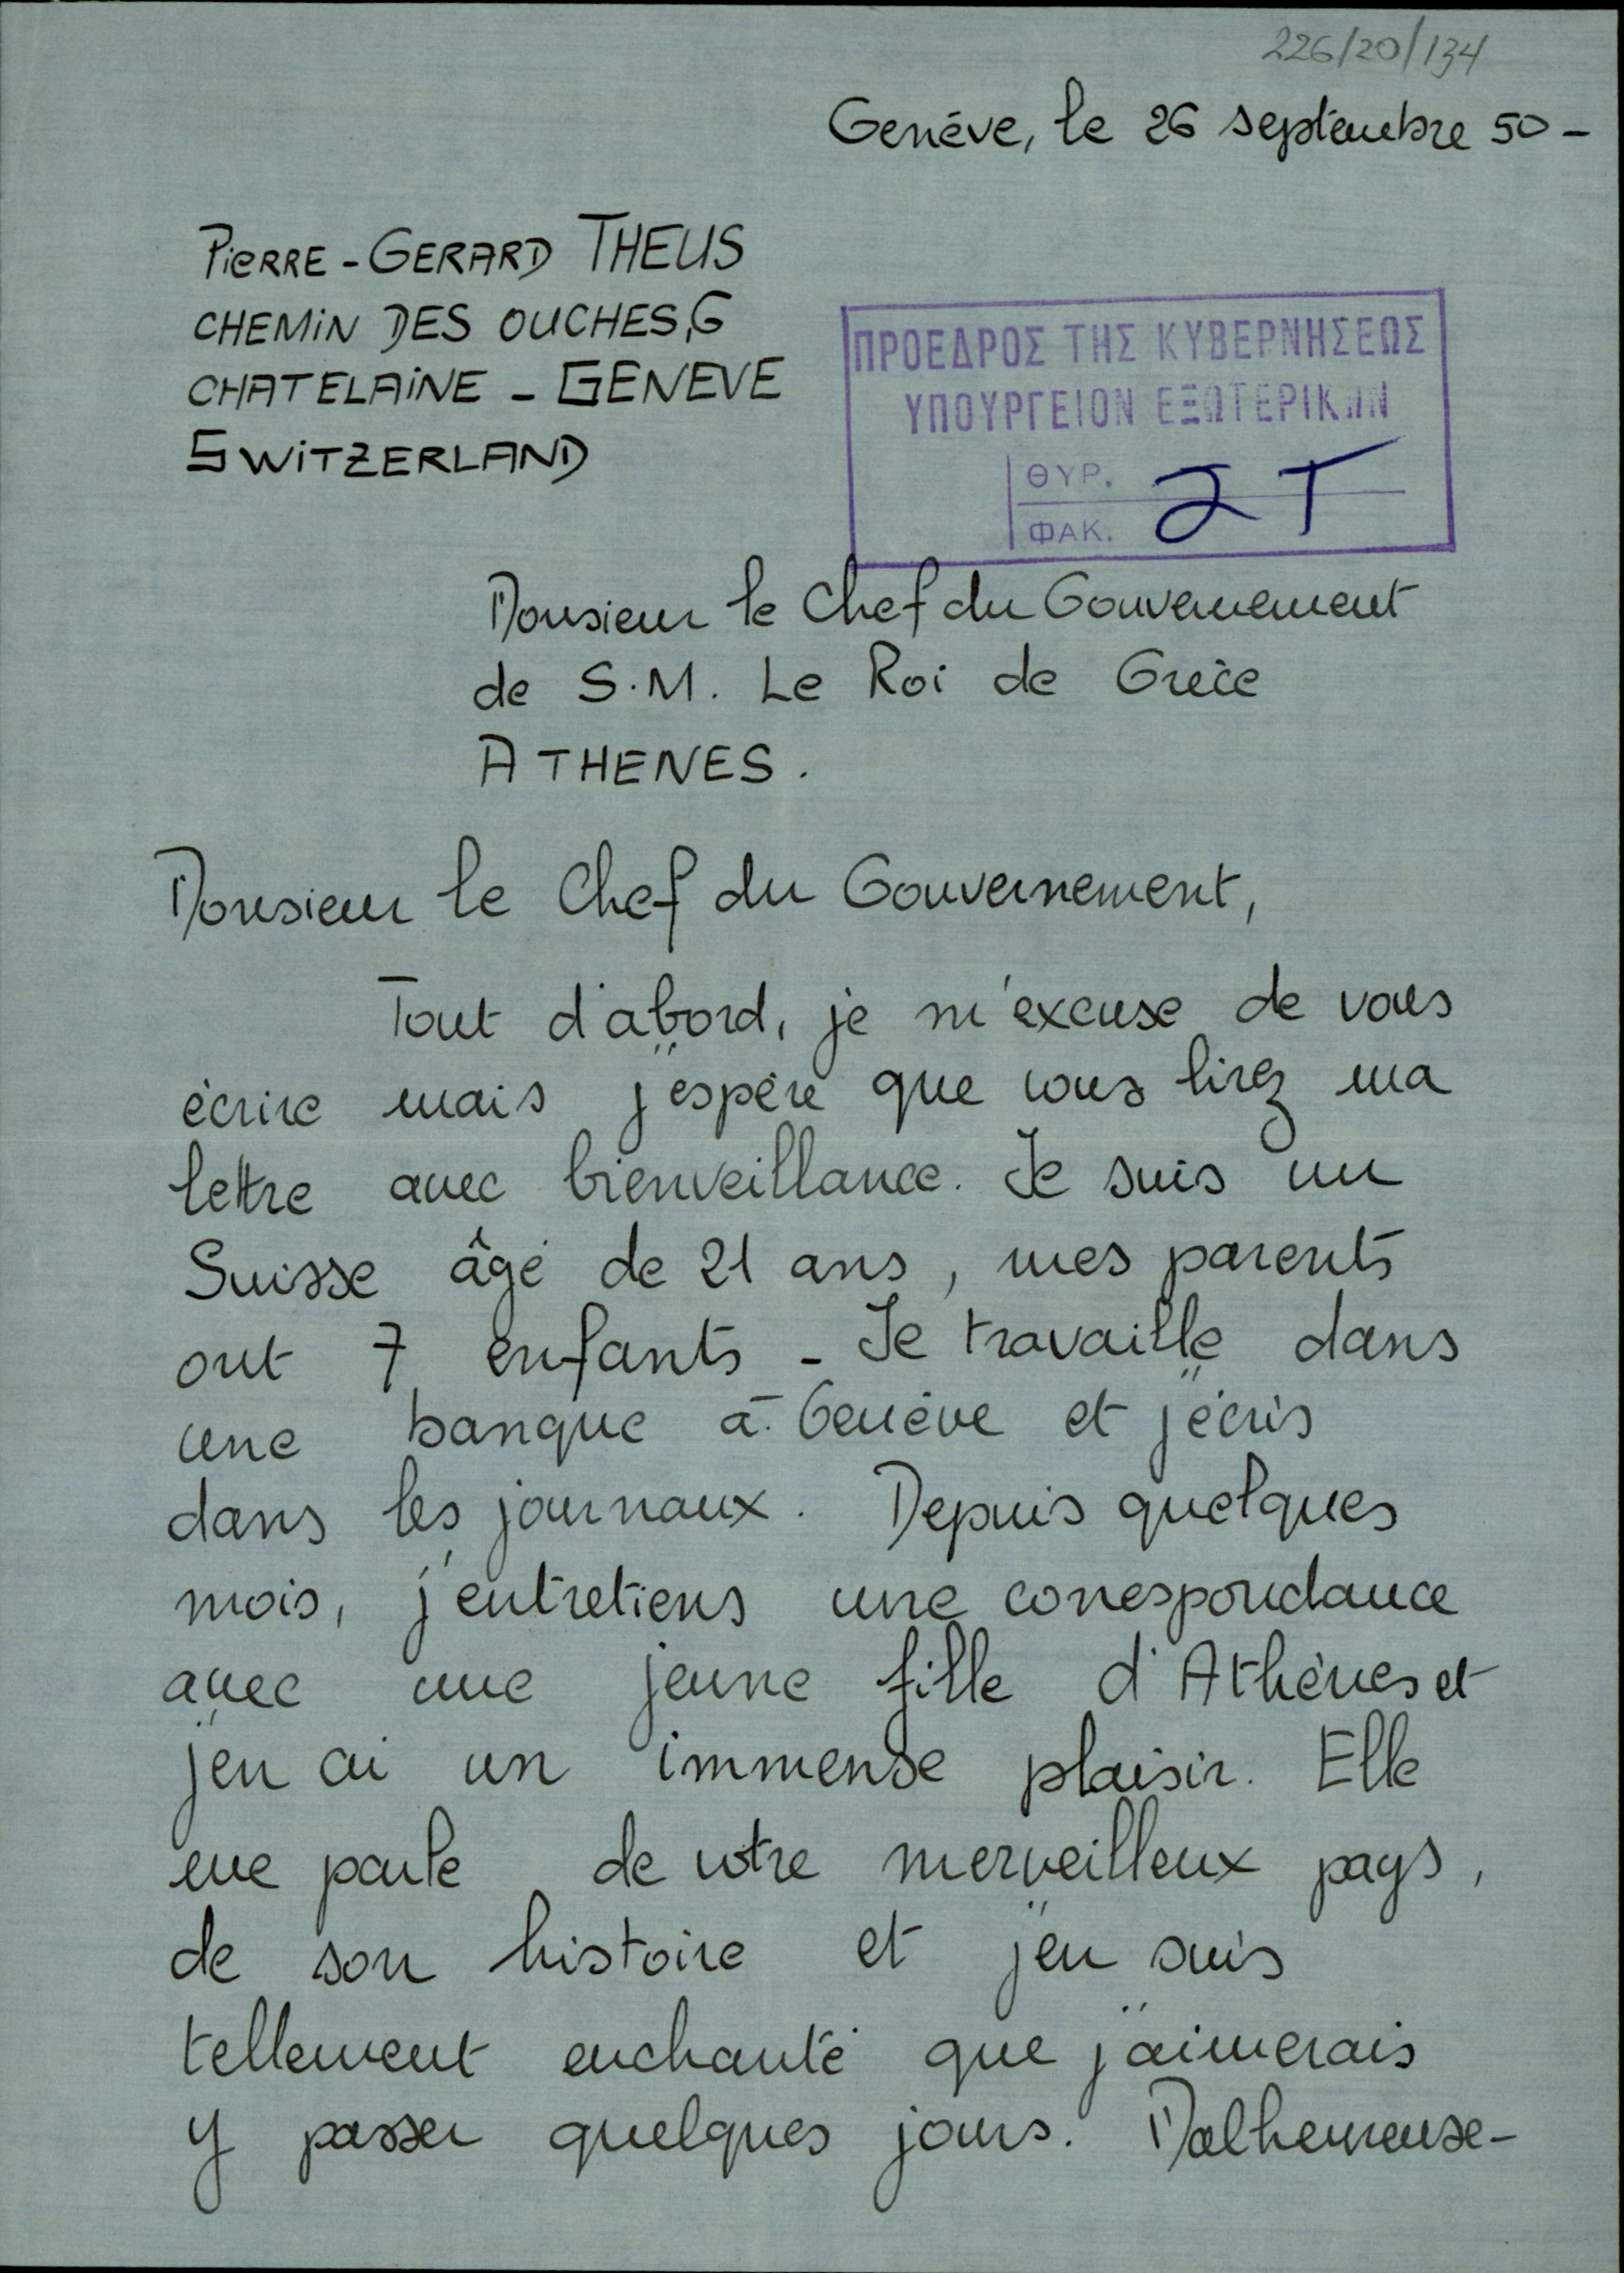 226/20/134
Genève, le 26 septembre 50 -
PiERRE - GERARD THEUS
CHEMiN DES OUCHES, 6
CHATELAiNE - GENEVE
SWiTZERLAND
ΠΡΟΕΔΡΟΣ ΤΗΣ ΚΥΒΕΡΝΗΣΕΩΣ
ΥΠΟΥΡΓΕΙΟΝ ΕΞΩΤΕΡΙΚΩΝ
ΘΥΡ.
ΦΑΚ.
Monsieur le Chef du Gouvernement
de S.M. Le Roi de Grèce
ATHENES.
Monsieur le Chef du Gouvernement,
Tout d'abord, je m'excuse de vous
écrire mais j'espère que vous lirez ma
lettre avec bienveillance. Je suis un
Suisse âgé de 21 ans, mes parents
ont 7 enfants - Je travaille dans
une banque à Genève et j'écris
dans les journaux. Depuis quelques
mois, j'entretiens une correspondance
avec une jeune fille d'Athènes et
j'en ai un immense plaisir. Elle
me parle de votre merveilleux pays,
de son histoire et j'en suis
tellement enchanté que j'aimerais
y passer quelques jours. Malheureuse-